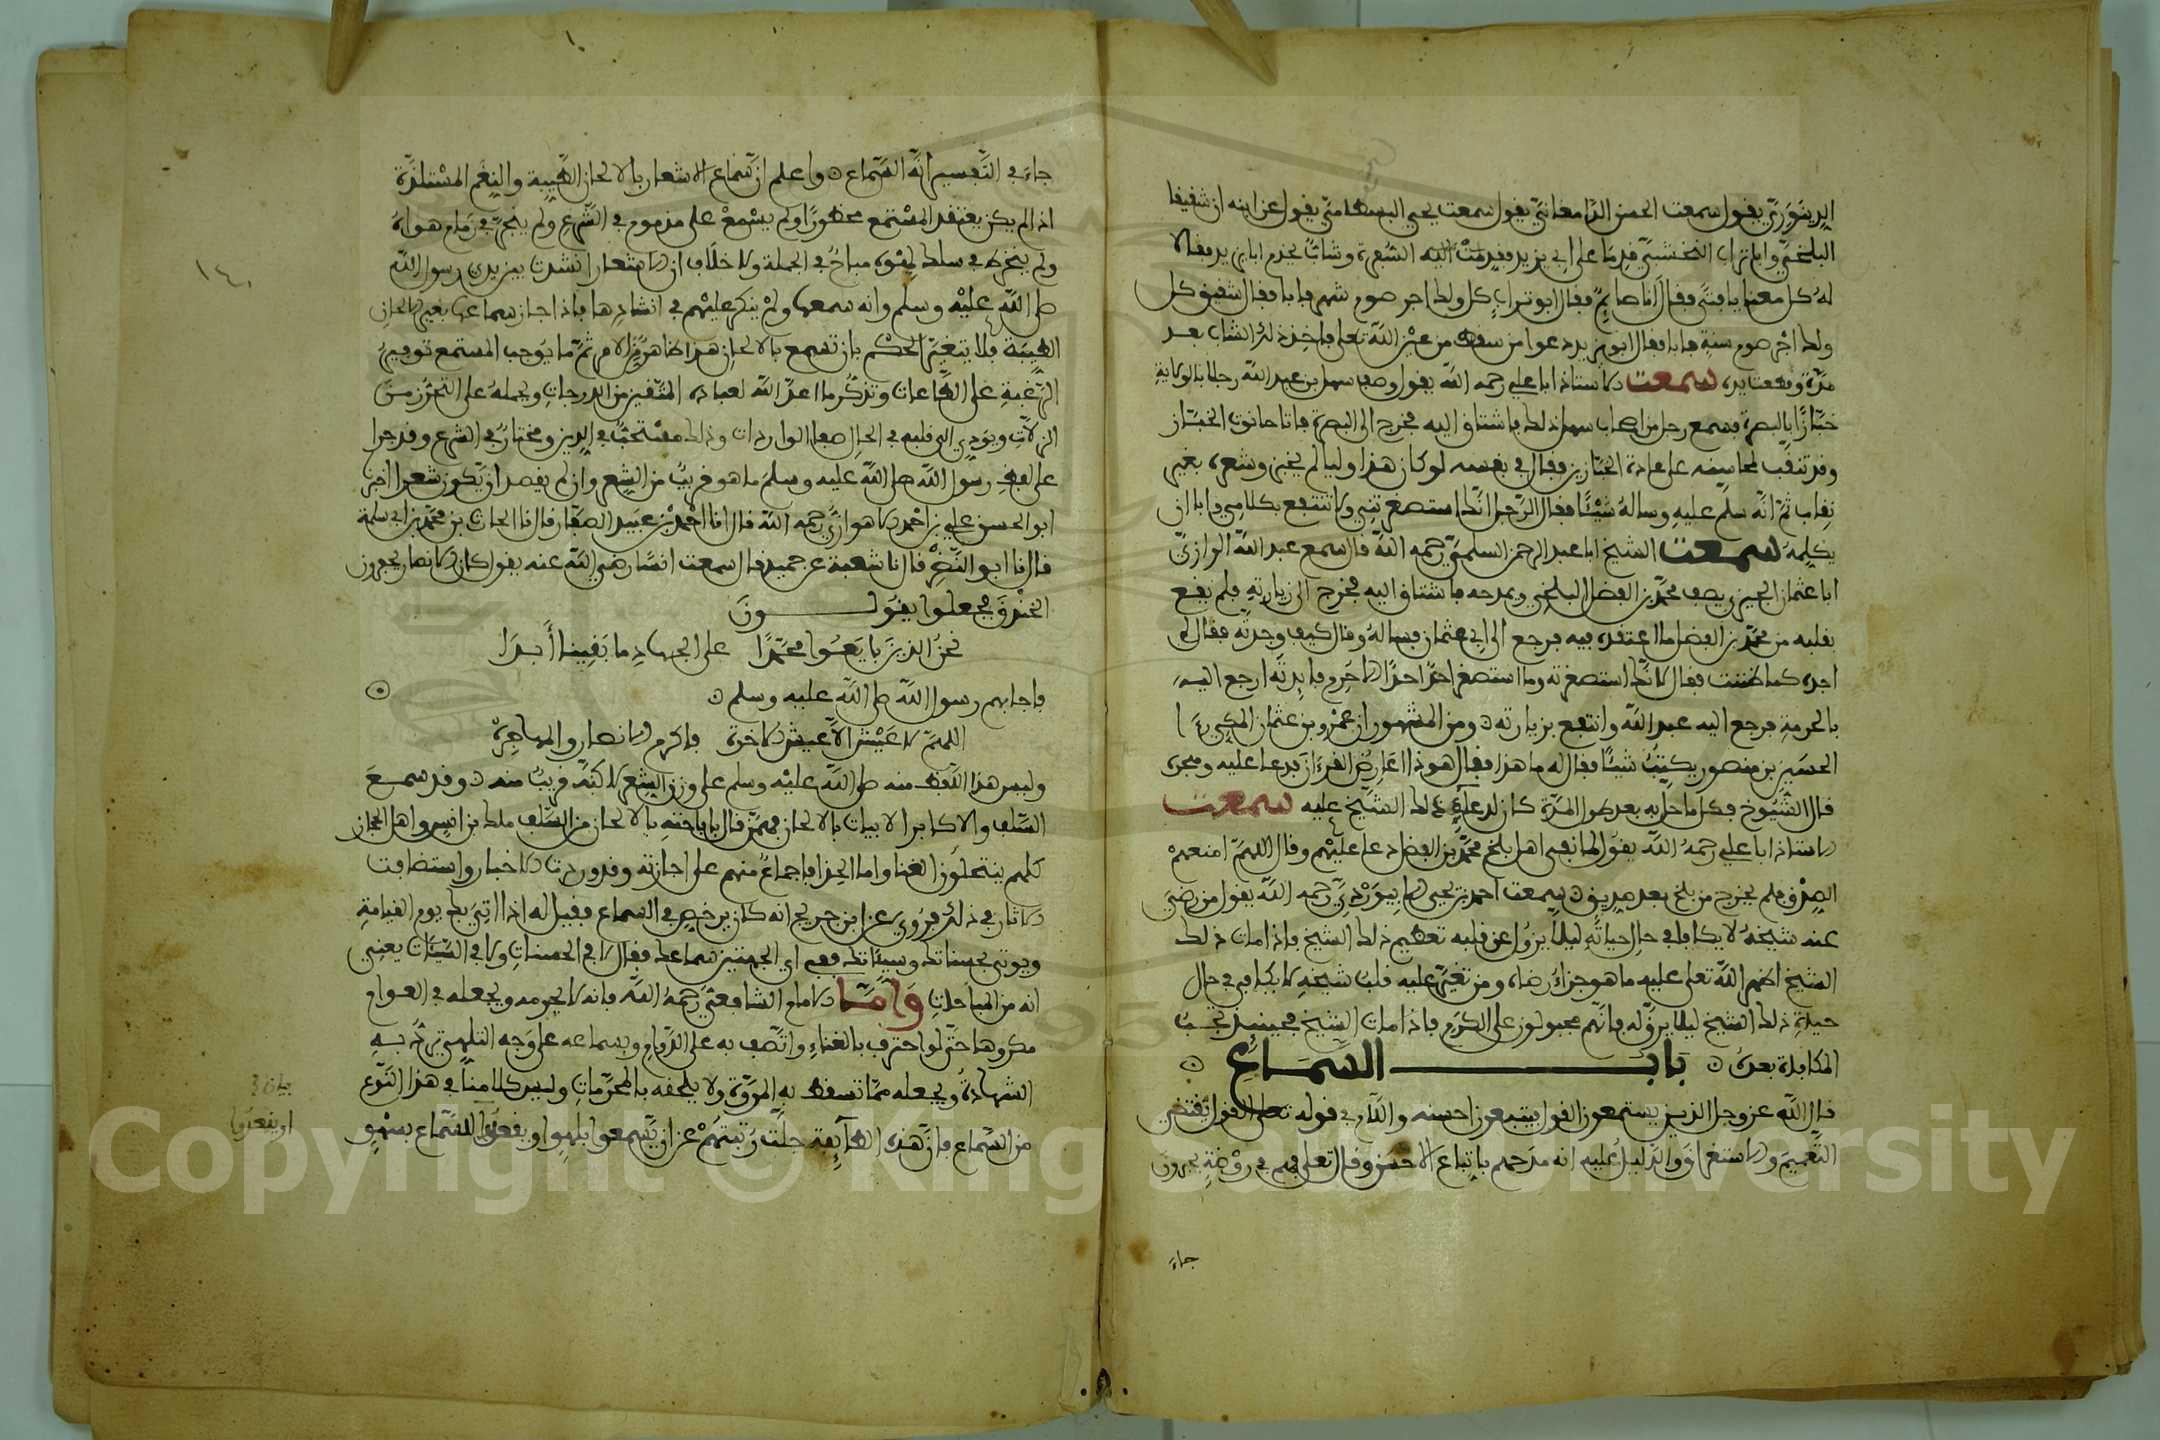 الدينوري يقول سمعت الحسن الدامغاني يقول سمعت يحيى البسطامي يقول عن ابيه ان شقيقا
البلخي وابا تراب النخشبي قدما على ابي يزيد فقدمت اليه السفرة وشاب يخدم ابا يزيد فقالا
له كل معنا يا فتى فقال انا صائم فقال ابو تراب كل ولك اجر صوم شهر فابا فقال شقيق كل
ولك اجر صوم سنة فابا فقال ابو يزيد دعوا من سقط من عين الله تعلى فاخذ ذلك الشاب بعد
مدة وقطعت يده سمعت الاستاذ ابا علي رحمه الله يقول وصف سهل بن عبد الله رجلا بالولاية
خبازا بالبصرة فسمع رجل من اصحاب سهل ذلك فاشتاق اليه فخرج الى البصرة فاتا حانوت الخباز
وقد تنقب لمحاسنه على عادة الخبازين فقال في نفسه لو كان هذا وليا لم يحترق شعره بغير
نقاب ثم انه سلم عليه وساله شيئا فقال الرجل انك استصغرتني ولا تنتفع بكلامي وابا ان
يكلمه سمعت الشيخ ابا عبد الرحمن السلمي رحمه الله قال سمع عبد الله الرازي
ابا عثمان الحيري يصف محمد بن الفضل البلخي ويمدحه فاشتاق اليه فخرج الى زيارته فلم يقع
بقلبه من محمد بن الفضل ما اعتقده فيه فرجع الى ابي عثمان فساله وقال كيف وجدته فقال لم
اجده كما ظننت فقال لانك استصغرته وما استصغر احد احدا الا حرم فايدته ارجع اليه
بالحرمة فرجع اليه عبد الله وانتفع بزيارته ومن المشهور ان عمرو بن عثمان المكي رءا
الحسين بن منصور يكتب شيئا فقال له ما هذا فقال هوذا اعارض القرءان فدعا عليه وهجره
قال الشيوخ فكل ما حل به بعد طول المدة كان لدعاء ذلك الشيخ عليه سمعت
الاستاذ ابا علي رحمه الله يقول لما نفى اهل بلخ محمد بن الفضل دعا عليهم وقال اللهم امنعهم
الصدق فلم يخرج من بلخ بعد صديق سمعت احمد بن يحيى الابيوردي رحمه الله يقول من رضي
عنه شيخه لا يكافا في حال حياته ليلا يزول عن قلبه تعظيم ذلك الشيخ فاذا مات ذلك
الشيخ اظهر الله تعلى عليه ما هو جزاء رضاه ومن تغير عليه قلب شيخه لا يكافى في حال
حياة ذلك الشيخ ليلا يرق له فانهم مجبولون على الكرم فاذا مات الشيخ فحينيذ تجب
المكافاة بعده باب السماع
قال الله عز وجل الذين يستمعون القول فيتبعون احسنه واللام في قوله تعلى القول تقتضي
التعميم والاستغراق والدليل عليه انه مدحهم باتباع الاحسن وقال تعلى فهم في روضة يحبرون
جاء
جاء في التفسير انه السماع واعلم ان سماع الاشعار بالالحان الطيبة والنغم المستلذة
اذا لم يكن يعتقد المستمع محظورا ولم يسمع على مذموم في الشرع ولم ينجر في زمام هواه
ولم ينخرط في سلك لهوه مباح في الجملة ولا خلاف ان الاشعار انشدت بين يدي رسول الله
صلى الله عليه وسلم وانه سمعها ولم ينكر عليهم في انشادها فاذا جاز سماعها بغير الالحان
الطيبة فلا يتغير الحكم بان تسمع بالالحان هذا ظاهر من الامر ثم ما يوجب المستمع توفير
الرغبة على الطاعات وتذكر ما اعد الله لعباده المتقين من الدرجات ويحمله على التحرز من
الزلات ويؤدي الى قلبه في الحال صفا الواردات وذلك مستحب في الدين ومختار في الشرع وقد جرا
على لفظ رسول الله صلى الله عليه وسلم ما هو قريب من الشعر وان لم يقصد ان يكون شعرا اخبرنا
ابو الحسن علي بن احمد الاهوازي رحمه الله قال انا احمد بن عبيد الصفار قال نا الحارث بن محمد بن ابي سلمة
قال نا ابو النضر قال نا شعبة عن حميد قال سمعت انسا رضي الله عنه يقول كان الانصار يحفرون
الخندق فجعلوا يقولون
نحن الذين بايعوا محمدا على الجهاد ما بقينا أبدا
فاجابهم رسول الله صلى الله عليه وسلم
اللهم لا عيش الا عيش الاخرة فاكرم الانصار والمهاجرة
وليس هذا اللفظ منه صلى الله عليه وسلم على وزن الشعر لاكنه قريب منه وقد سمع
السلف والاكابر الابيات بالالحان فممن قال باباحته بالالحان من السلف ملك بن انس واهل الحجاز
كلهم ينتحلون الغنا واما الحدا فاجماع منهم على اجازته وقد وردت الاخبار واستفاضت
الاثار في ذلك فروي عن ابن جريج انه كان يرخص في السماع فقيل له اذا اتي بك يوم القيامة
ويوتى بحسناتك وسيئاتك ففي اي الجهتين سماعك فقال لا في الحسنات ولا في السيئات يعني
انه من المباحات وأما الامام الشافعي رحمه الله فانه لا يحرمه ويجعله في العوام
مكروها حتى لو احترف بالغناء واتصف به على الدوام وبسماعه على وجه التلهي ترد به
الشهادة ويجعله مما تسقط به المروة ولا يلحقه بالمحرمات وليس كلامنا في هذا النوع
من السماع فان هذه الطآيفة جلت رتبتهم عن ان يسمعوا بلهو او يقعدوا للسماع بسهو
او يقعدوا
١٤٠
Copyright © King Saud University